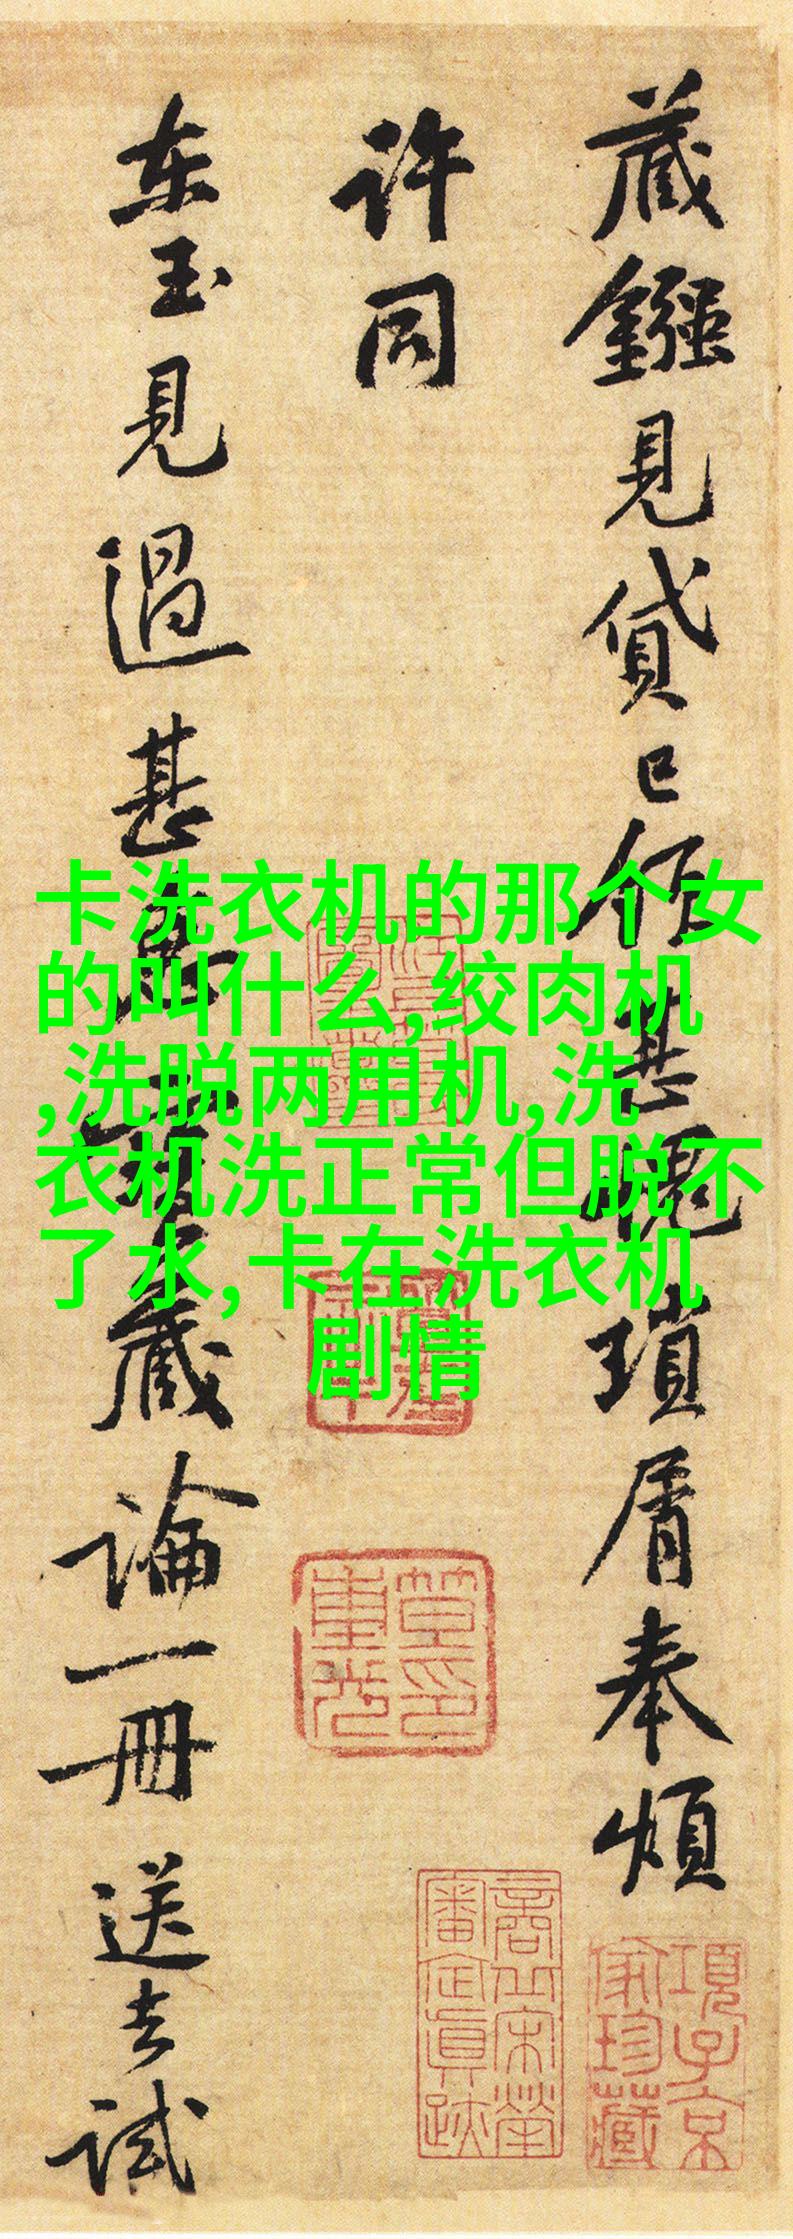 藏鏹見貸已領甚愧瑣屑奉煩
许同
东玉見過甚
藏論一冊送去試
卡洗衣机的那个女
的叫什么,绞肉机
,洗脱两用机,洗
衣机洗正常但脱不
了水,卡在洗衣机
剧情
項子京
家珍藏